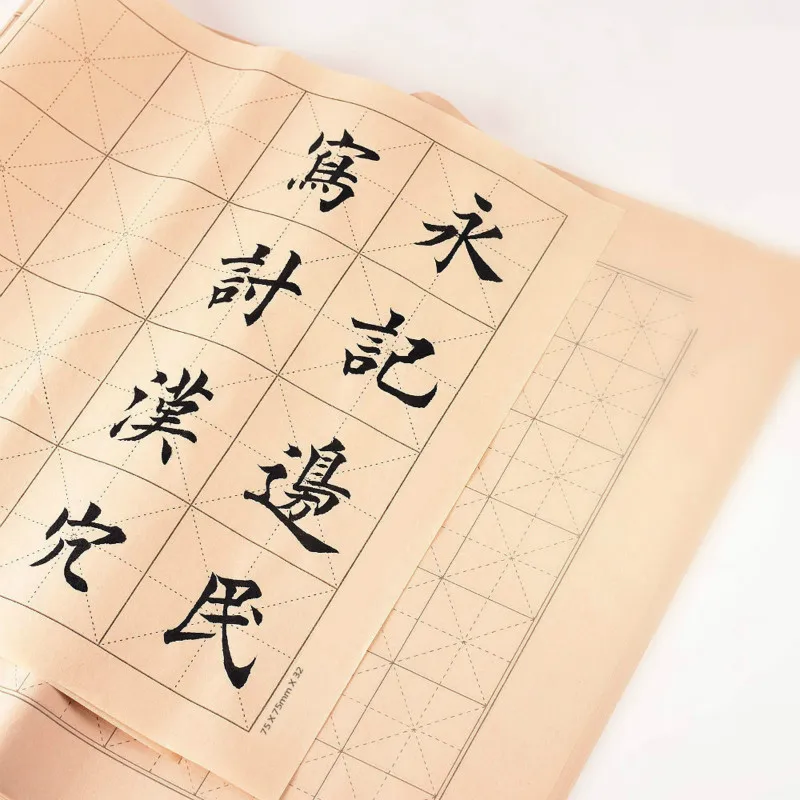 永記邊民
寫計漢穴
75 X 75mm X 32